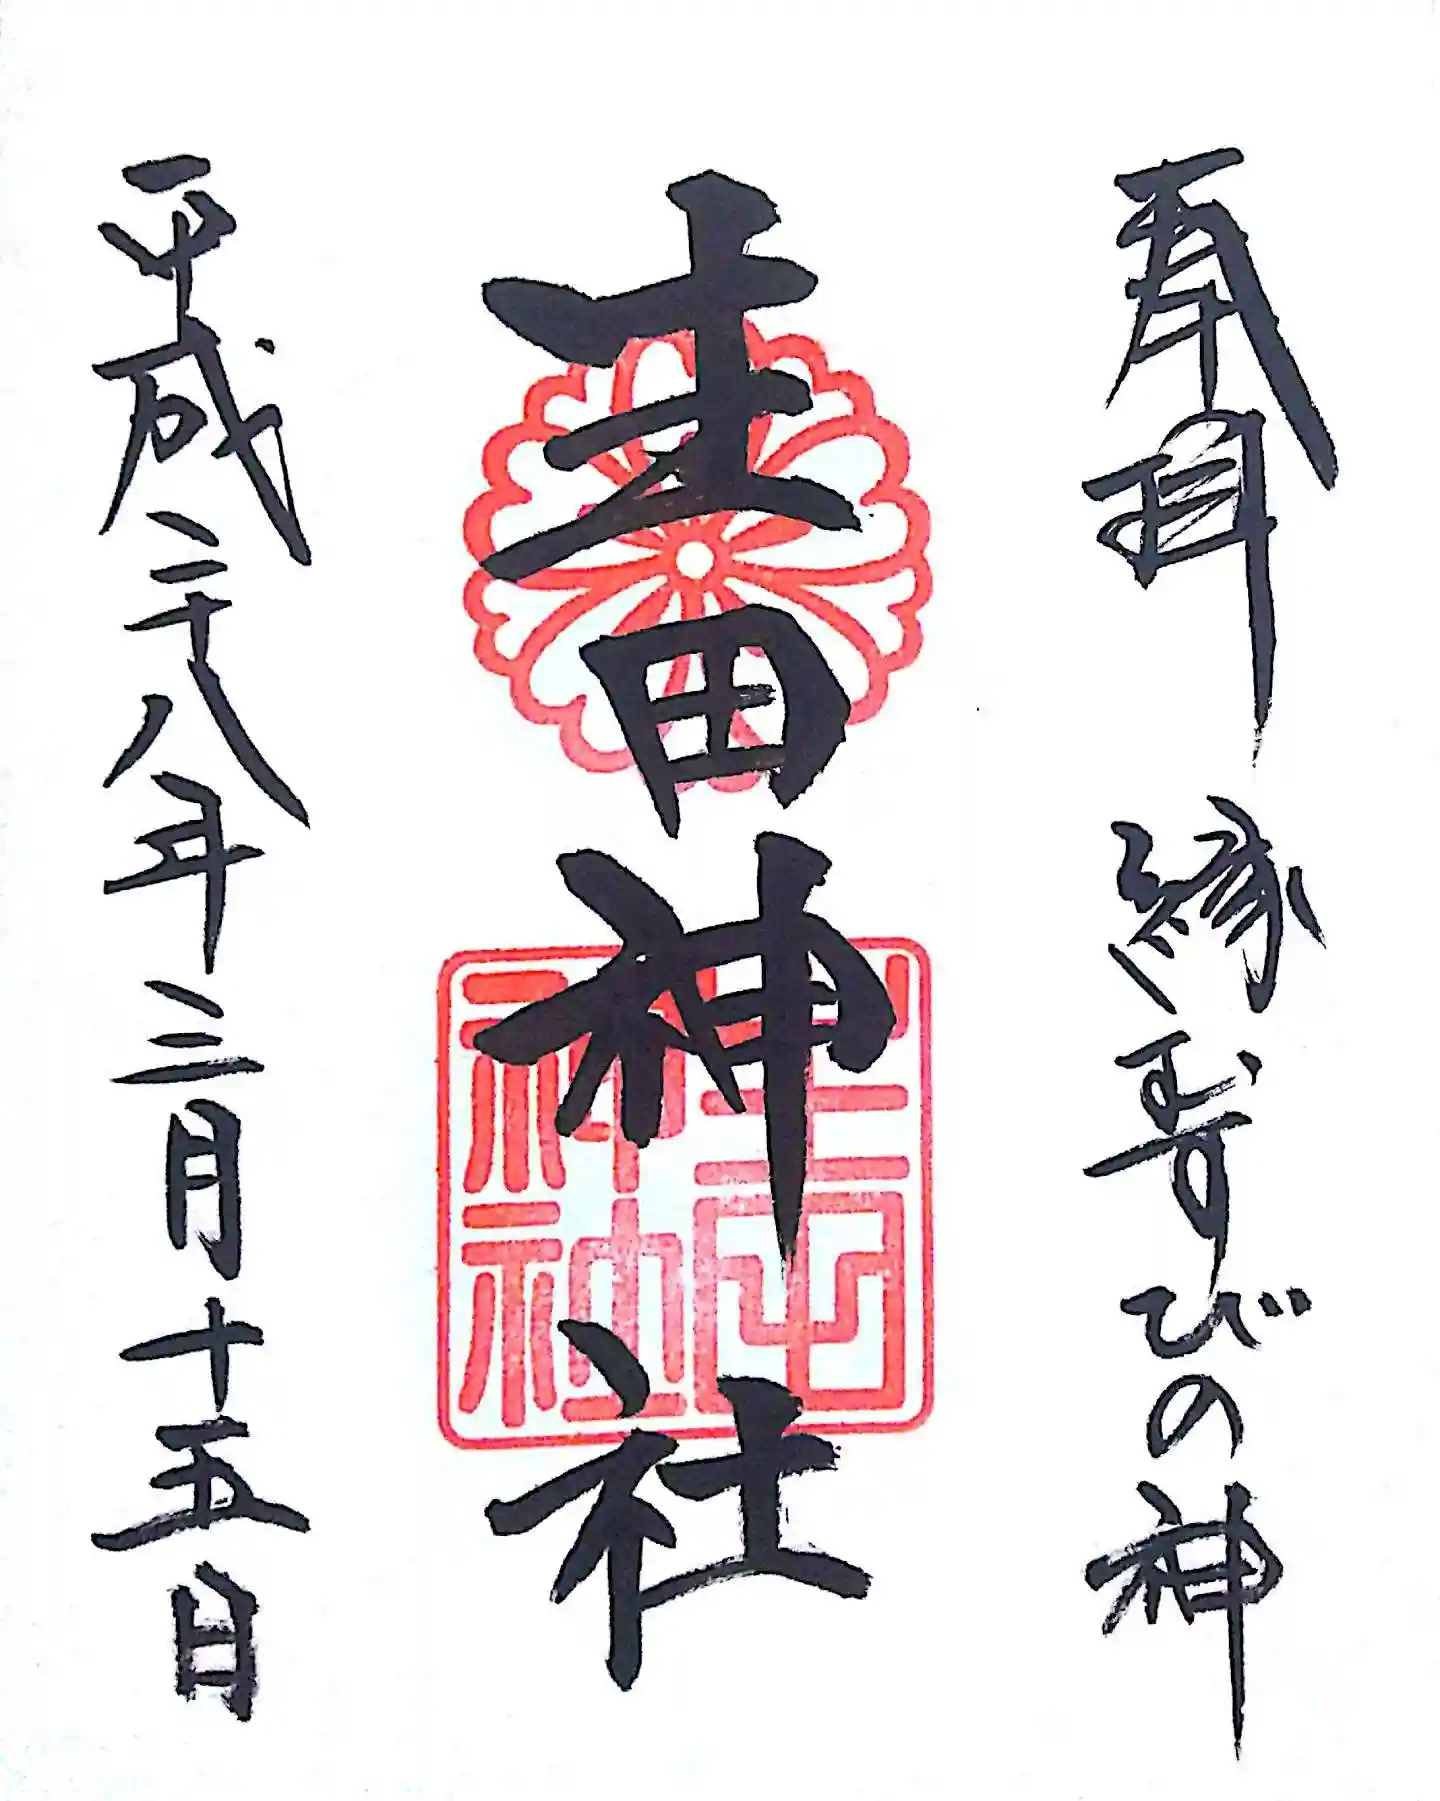 奉拝 縁むすびの神
生田神社
平成二十八年三月十五日
生田神社